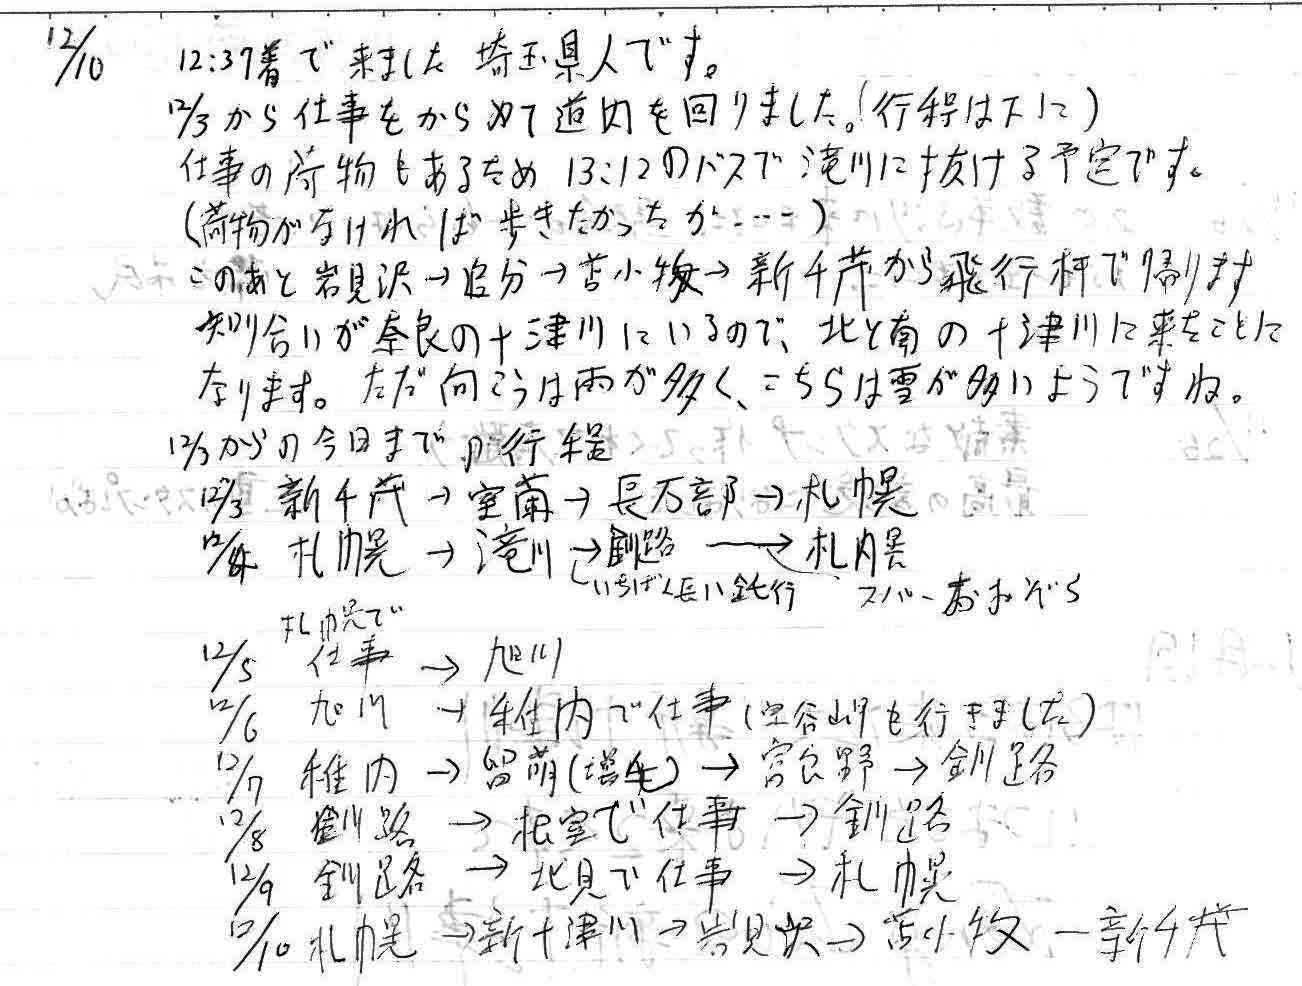 12/10 12:37着で来ました 埼玉県人です。
12/3から仕事をからめて道内を回りました。(行程は下に)
仕事の荷物もあるため 13:12のバスで滝川に抜ける予定です。
(荷物がなければ歩きたかったが……)
このあと岩見沢→追分→苫小牧→新千歳から飛行機で帰ります
知り合いが奈良の十津川にいるので、北と南の十津川に来たことに
なります。ただ向こうは雨が多く、こちらは雪が多いようですね。
12/3からの今日までの行程
12/3 新千歳→室蘭→長万部→札幌
12/4 札幌→滝川→釧路→札幌
いちばん長い鈍行 スーパーおおぞら
札幌で
12/5 仕事→旭川
12/6 旭川→稚内で仕事(宗谷岬も行きました)
12/7 稚内→留萌(増毛)→富良野→釧路
12/8 釧路→根室で仕事→釧路
12/9 釧路→北見で仕事→札幌
12/10 札幌→新十津川→岩見沢→苫小牧―新千歳